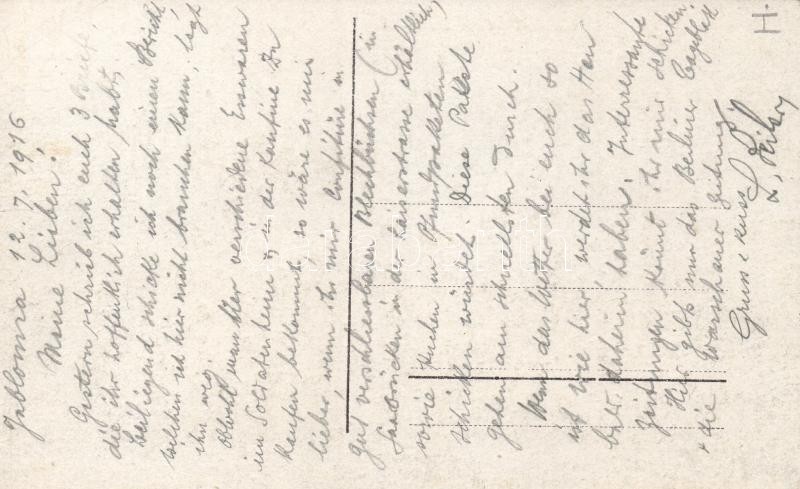 H.
Jablonna 12.7.1916
Meine Lieben!
Gestern schrieb ich euch 3 Briefe,
die ihr hoffentlich erhalten habt,
beiliegend schicke ich noch einen Bericht
welchen ich hier nicht brauchen kann, legt
ihn weg
Obwohl man hier verschiedene Esswaren
im Soldatenheim u. in der Kantine zu
kaufen bekommt, so wäre es mir
lieber, wenn ihr mir Confitüre in
gut verschliessbaren Blechbüchsen (in
Saarbrücken in der Kaiserstrasse erhältlich)
sowie Kuchen in Pfundpaketen
schicken würdet. Diese Pakete
gehen am schnellsten durch.
Wenn das Wetter bei euch so
ist wie hier, werdet ihr das Heu
bald daheim haben. Interessante
Zeitungen könnt ihr mir schicken
Hier gibts nur das Berliner Tageblatt
+ die Warschauer Zeitung
Gruss & Kuss
darabanth